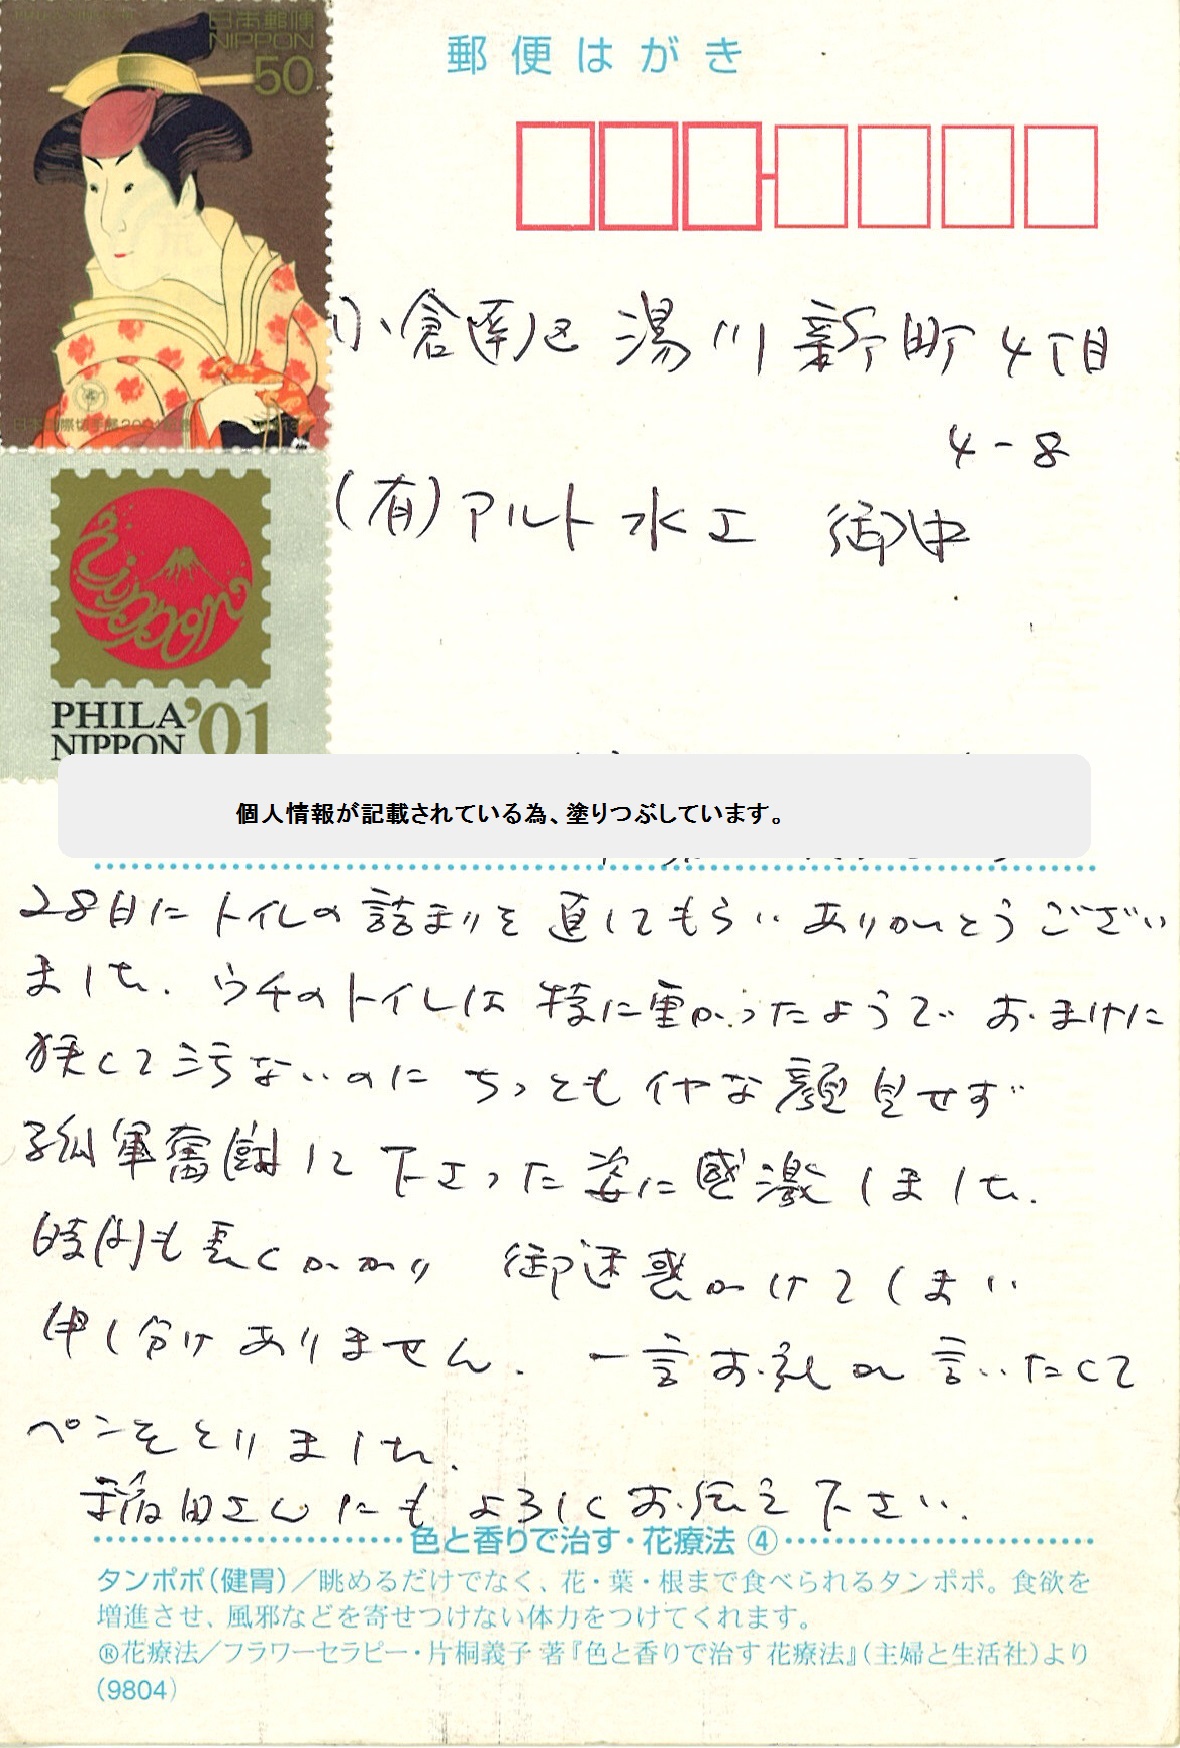 日本郵便
NIPPON
50
郵便はがき
小倉南区 湯川新町4丁目
4-8
(有)アルト水工 御中
Nippon
PHILA
NIPPON '01
個人情報が記載されている為、塗りつぶしています。
28日にトイレの詰まりを直してもらい ありがとうござい
ました. ウチのトイレは 特に重かったようで おまけに
狭くて汚ないのに ちっともイヤな顔見せず
孤軍奮闘して下さった姿に感激しました.
時間も長くかかり 御迷惑かけてしまい
申し分けありません. 一言お礼が言いたくて
ペンをとりました.
稲田さんにも よろしくお伝え下さい.
色と香りで治す・花療法 ④
タンポポ(健胃)/眺めるだけでなく、花・葉・根まで食べられるタンポポ。食欲を
増進させ、風邪などを寄せつけない体力をつけてくれます。
®花療法/フラワーセラピー・片桐義子 著『色と香りで治す 花療法』(主婦と生活社)より
(9804)